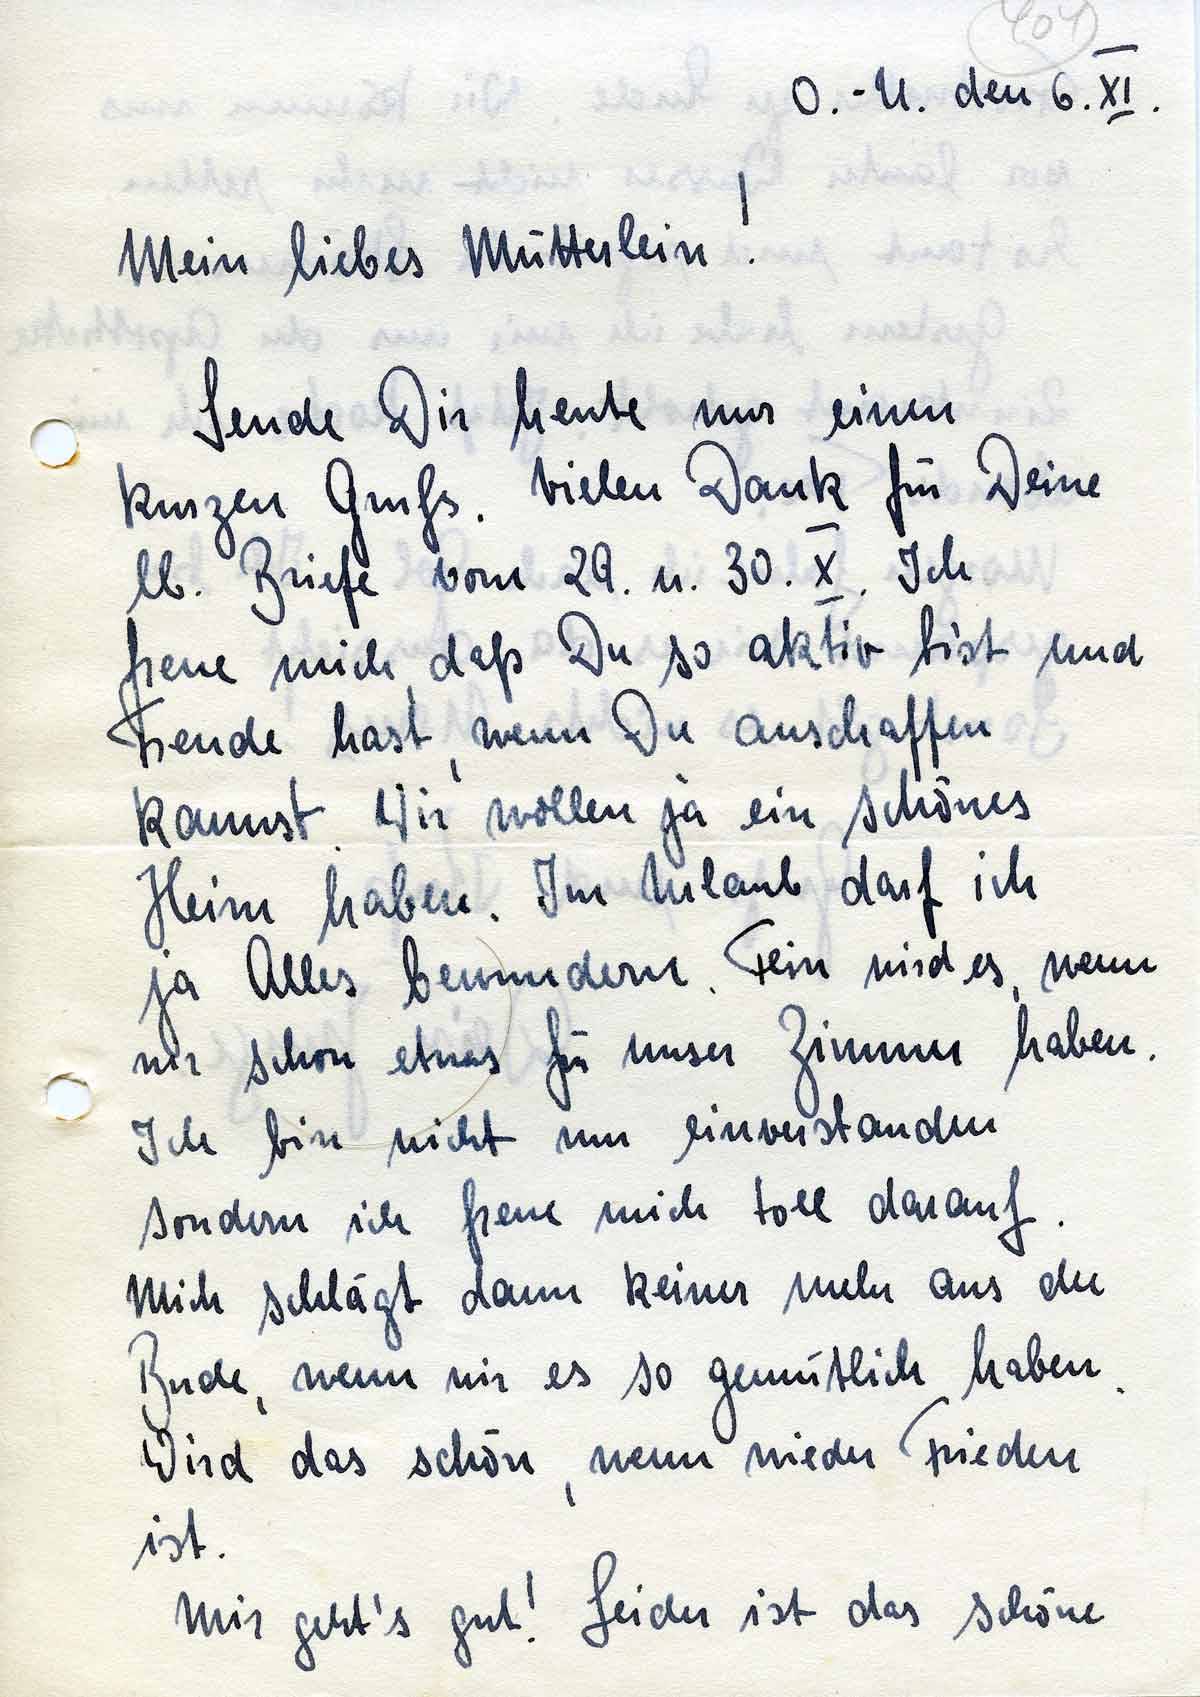 404
O.-U. den 6. XI.
Mein liebes Mütterlein!
Sende Dir heute nur einen
kurzen Gruß. Vielen Dank für Deine
lb. Briefe vom 29. u. 30. X. Ich
freue mich, daß Du so aktiv bist und
Freude hast, wenn Du anschaffen
kannst. Wir wollen ja ein schönes
Heim haben. Im Urlaub darf ich
ja Alles bewundern. Fein wird es, wenn
wir schon etwas für unser Zimmer haben.
Ich bin nicht nur einverstanden
sondern ich freue mich toll darauf.
Mich schlägt dann keiner mehr aus der
Bude, wenn wir es so gemütlich haben.
Wird das schön, wenn wieder Frieden
ist.
Mir geht's gut! Leider ist das schöne